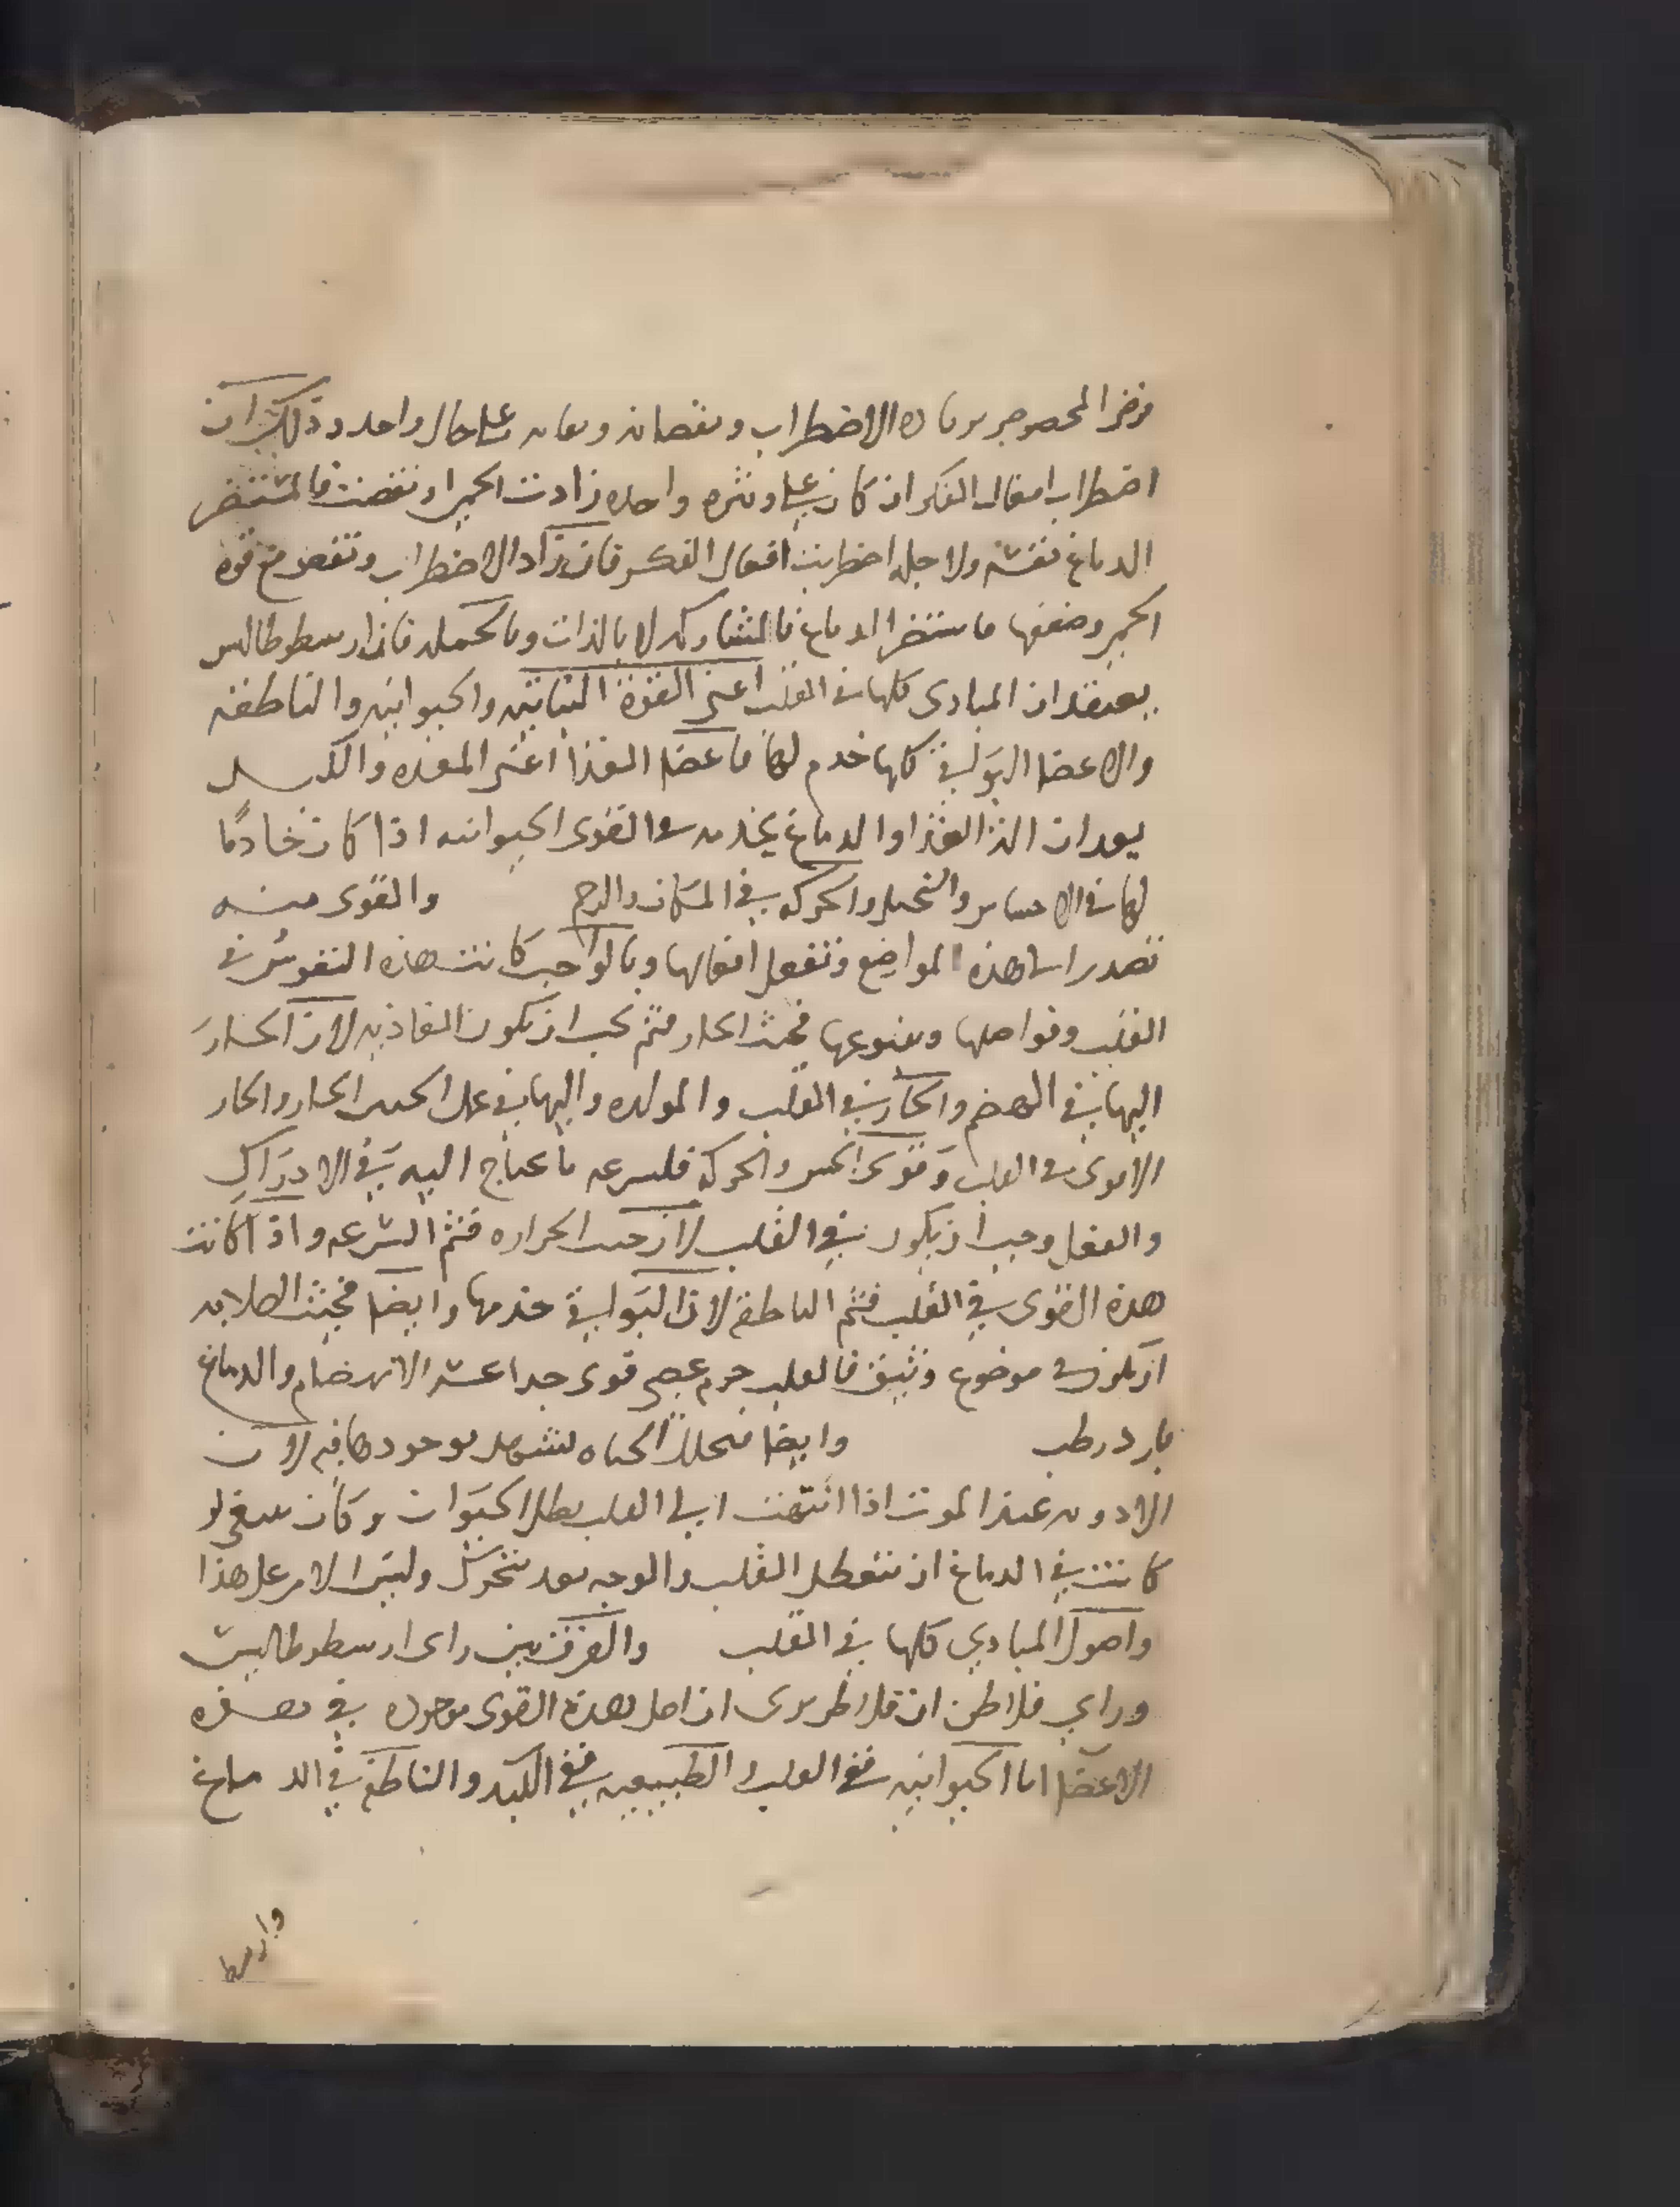 مرض المخصوص بزيادة الاضطراب ونقصانه وبقائه على حال واحد وذلك ان
اضطراب افعال الفكر ان كان على وتيرة واحدة زادت الحمى او نقصت فالمستضر
الدماغ نفسه ولاجله اضطربت افعال الفكر فان زاد الاضطراب ونقص مع قوة
الحمى وضعفها فاستضر الدماغ فالمشاركة لا بالذات وبالجملة فان ارسطوطالس
يعتقد ان المبادى كلها في القلب اعنى القوة النباتية والحيوانية والناطقة
والاعضا البواقي كلها خدم لها فاعضا الغذا اعنى المعدة والكبد
يعدان الغذا والدماغ يخدمه في القوى الحيوانية اذا كان خادما
لها في الاحساس والتخيل والحركة في المكان والرحم والقوى منه
تصدر الى هذه المواضع وتفعل افعالها وبالواجب كانت هذه النفوس في
القلب وفواصلها وينبوعها فحيث الحار فثم يجب ان يكون الغاذية لان الحار
اليها في الهضم والحار في القلب والمولدة واليها في عمل الحس الحار والحار
الاقوى في القلب وقوى الحس والحركة فلسرعة ما يحتاج اليه في الادراك
والفعل وجب ان يكون في القلب لان حيث الحرارة فثم السرعة واذا كانت
هذه القوى في القلب فثم الناطقة لان البواقي خدمها وايضا فحيث الصلابة
ان يكون في موضوع وثيق فالقلب جرم عصبي قوى جدا عسر الانهضام والدماغ
بارد رطب وايضا فتحلل الحياة تشهد بوجودها فيه لان
الادوية عند الموت اذا انتهت الى القلب بطل الحيوان وكان ينبغي لو
كانت في الدماغ ان يتعطل القلب والوجه بعد يتحرك وليس الامر على هذا
واصول المبادي كلها في القلب والفرق بين راى ارسطوطاليس
وراي فلاطن ان فلاطن يرى ان اصل هذه القوى موجودة في هذه
الاعضا اما الحيوانية ففي القلب والطبيعية ففي الكبد والناطقة في الدماغ
وارسطو